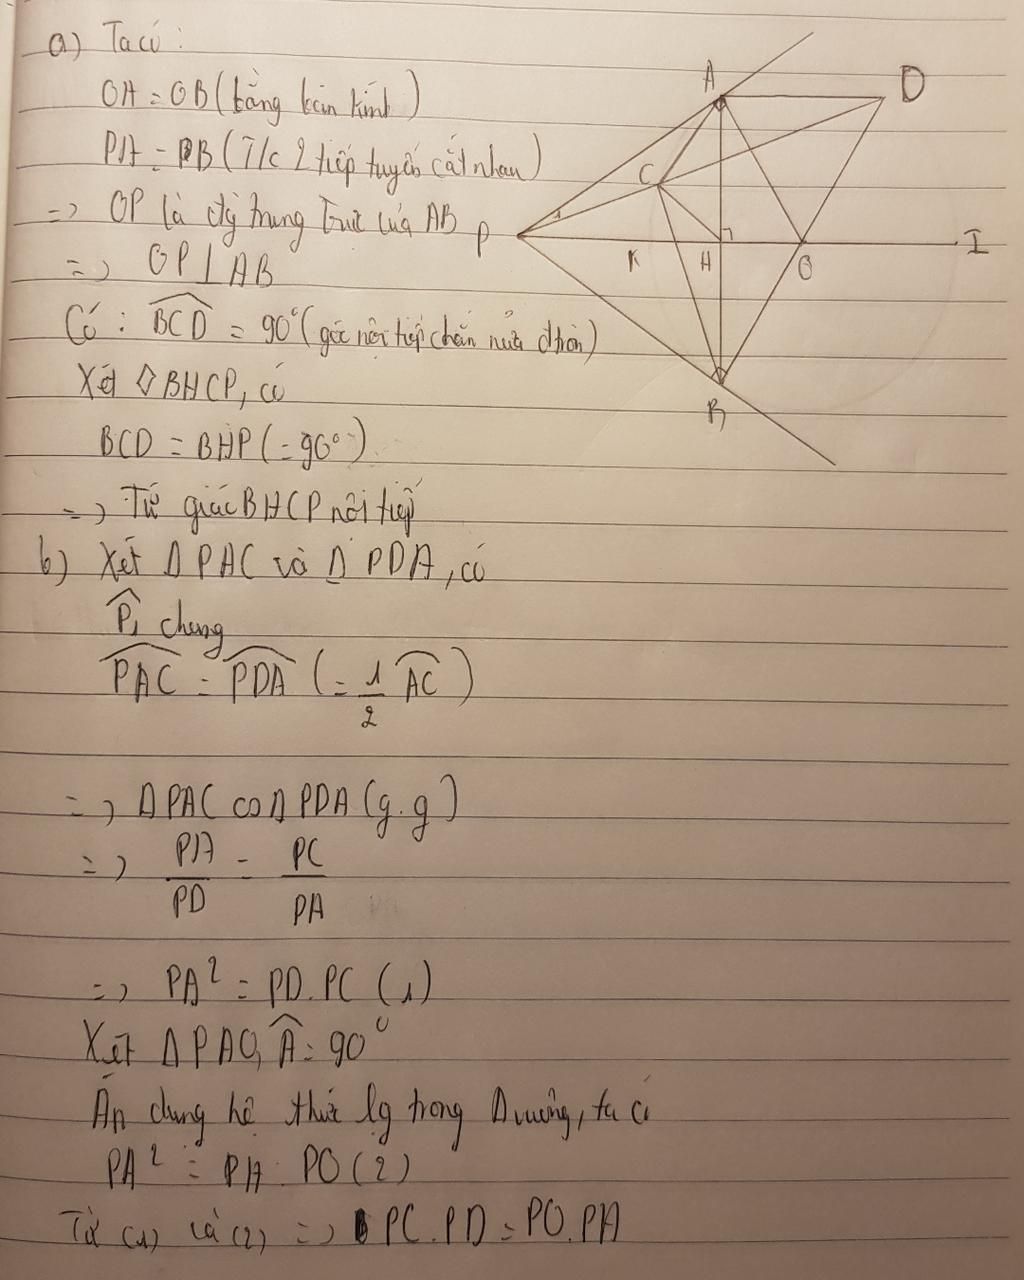 a) Ta có :
OA = OB (bằng bán kính)
PA = PB (T/c 2 tiếp tuyến cắt nhau)
=> OP là đg trung trực của AB
=> OP ⊥ AB
Có : BCD = 90° (góc nội tiếp chắn nửa đtròn)
Xét ◊ BHCP, có
BCD = BHP (= 90°)
=> Tứ giác BHCP nội tiếp
b) Xét Δ PAC và Δ PDA, có
P₁ chung
PAC = PDA (= 1/2 AC)
=> Δ PAC ∽ Δ PDA (g.g)
=> PA/PD = PC/PA
=> PA² = PD.PC (1)
Xét Δ PAO, A = 90°
Áp dụng hệ thức lg trong Δ vuông, ta có
PA² = PH . PO (2)
Từ (1) và (2) => PC.PD = PO.PH
A
D
C
P
1
K
H
O
I
B